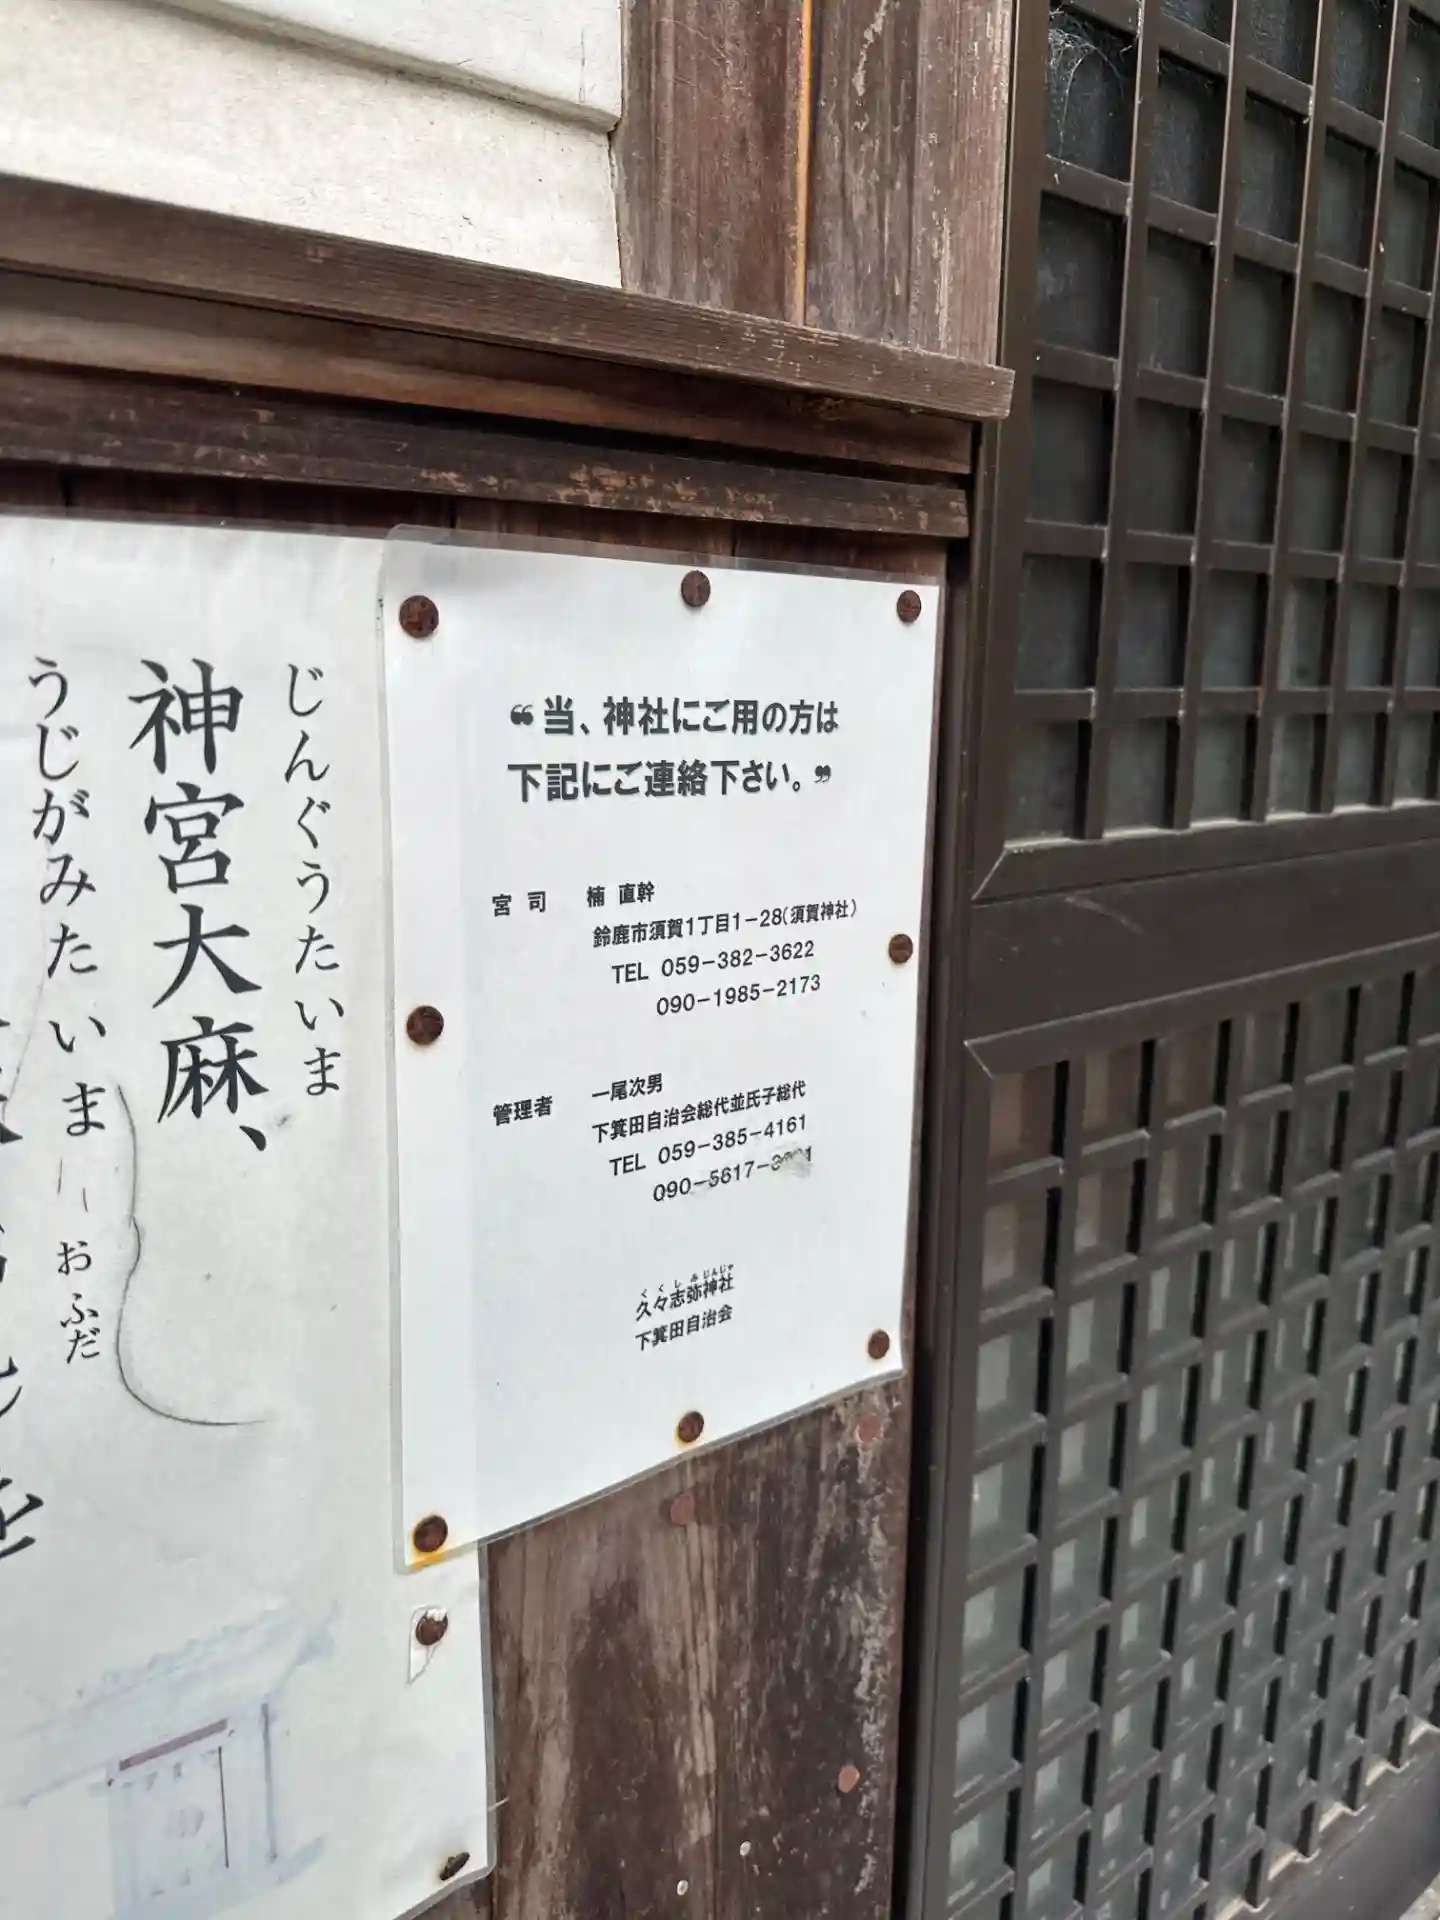 “当、神社にご用の方は
下記にご連絡下さい。”
宮 司 楠 直幹
鈴鹿市須賀1丁目1-28(須賀神社)
TEL 059-382-3622
090-1985-2173
管理者 一尾次男
下箕田自治会総代並氏子総代
TEL 059-385-4161
090-5617-
くくしみじんじゃ
久々志弥神社
下箕田自治会
じんぐうたいま
神宮大麻、
うじがみたいま
おふだ